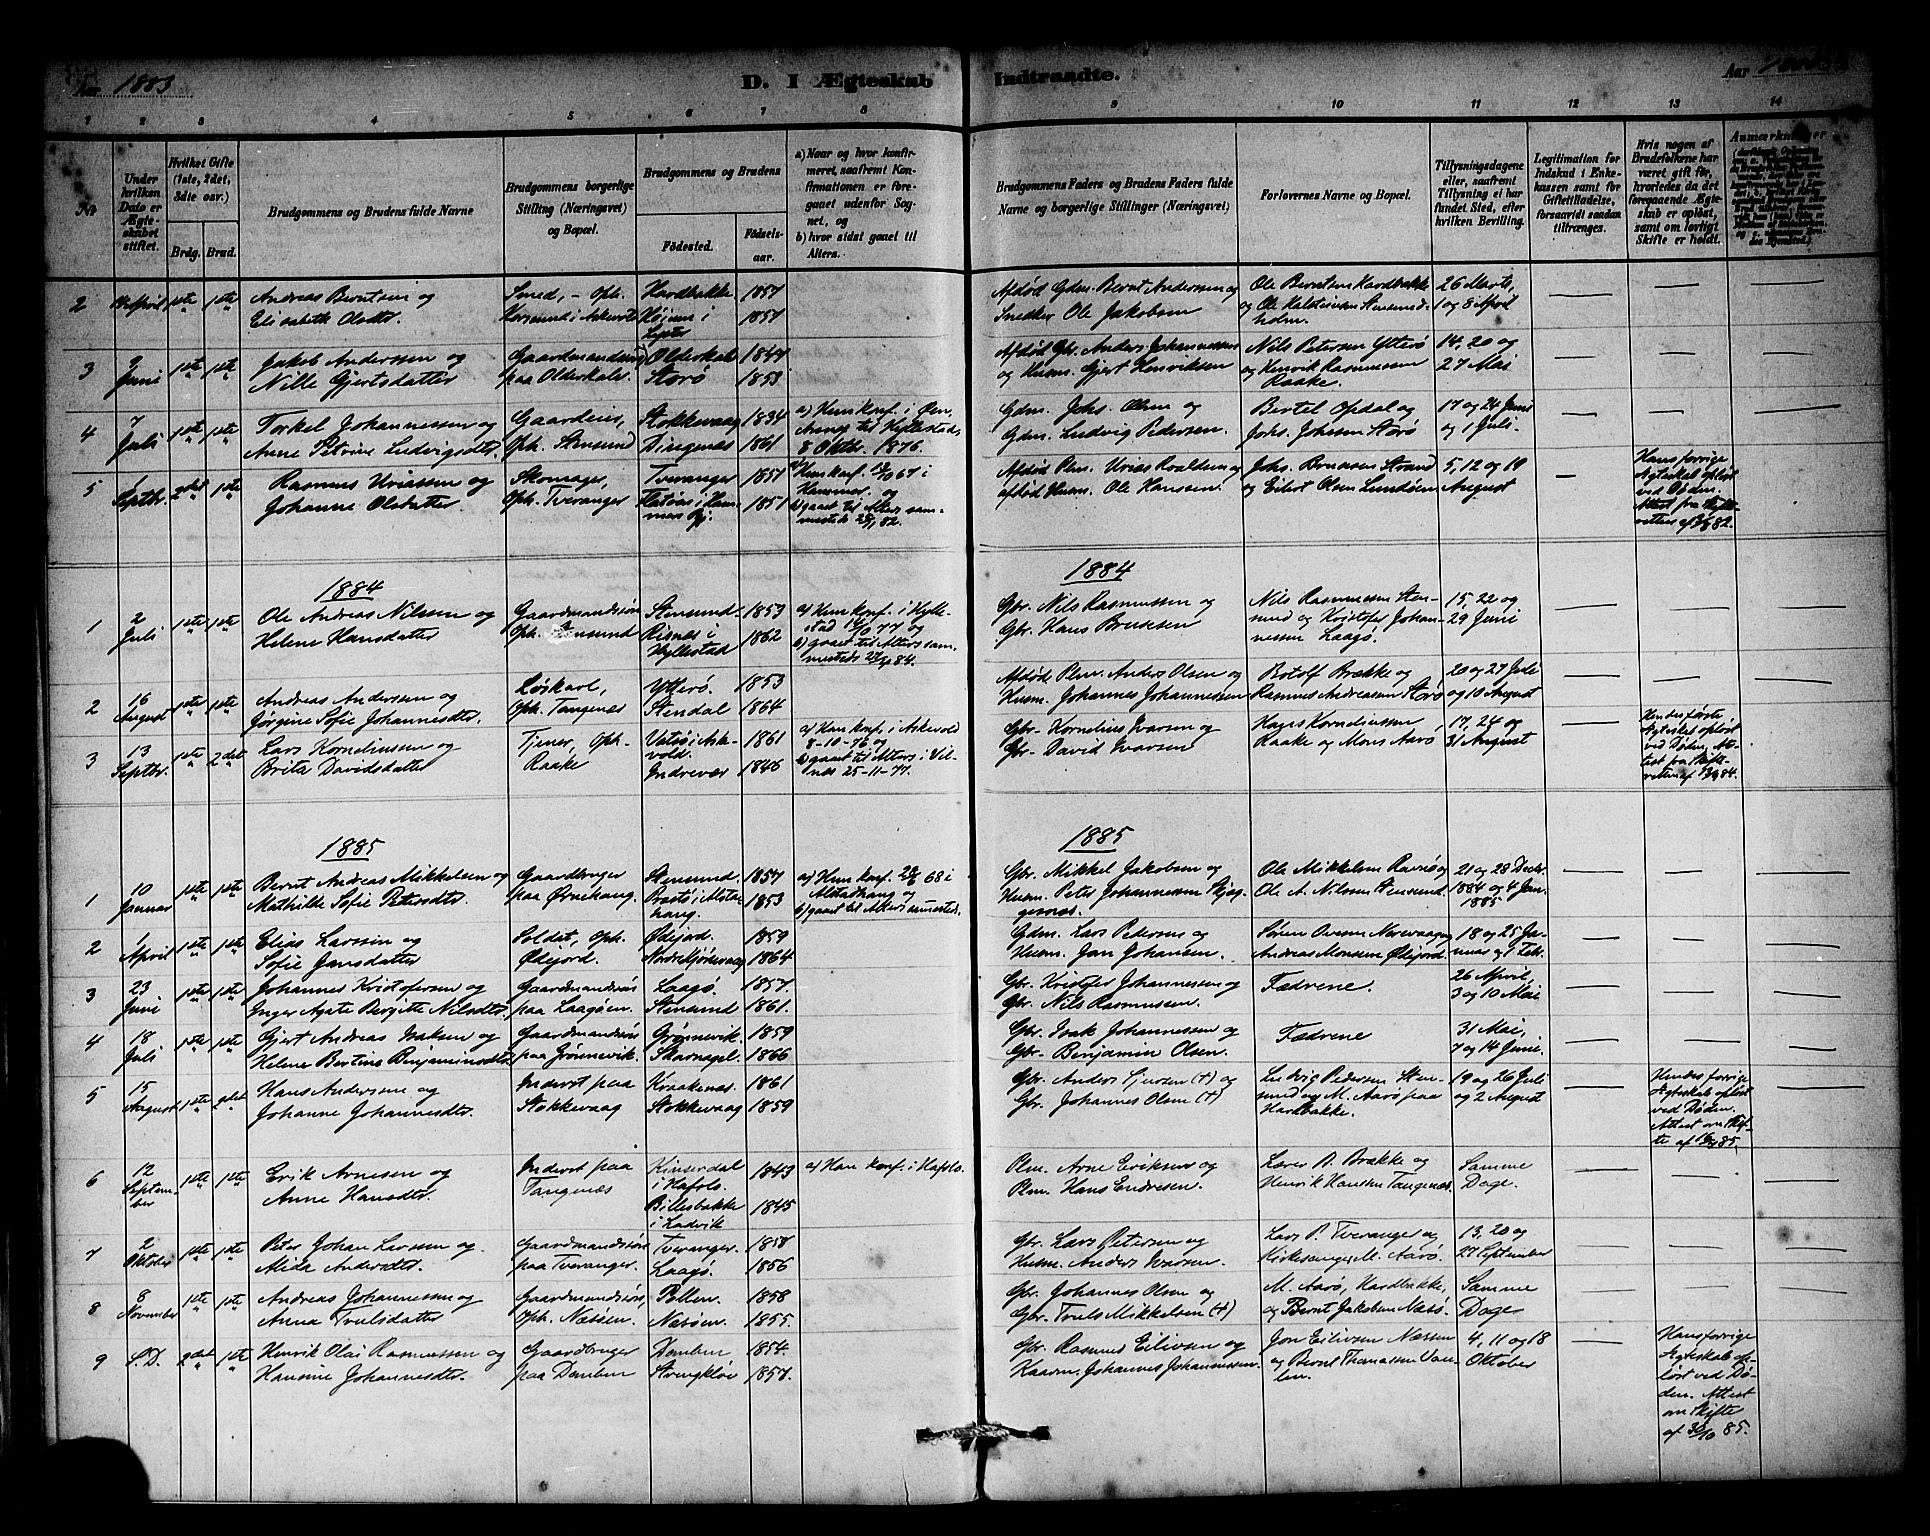 Aar 1883
D. I Ægteskab Indtraadte.
Aar
1 2 3 4 5 6 7 8 9 10 11 12 13 14
No
Under hvilken Dato er Ægteskabet stiftet.
Hvilket Gifte (1ste, 2det, 3die osv.)
Brdg. Brud.
Brudgommens og Brudens fulde Navne
Brudgommens borgerlige Stilling (Næringsvei) og Bopæl.
Brudgommens og Brudens
Födested. Födselsaar.
a) Naar og hvor konfirmeret, saafremt Konfirmationen er foregaaet udenfor Sognet, og
b) hvor sidst gaaet til Alters.
Brudgommens Faders og Brudens Faders fulde Navne og borgerlige Stillinger (Næringsvei)
Forlovernes Navne og Bopæl.
Tillysningsdagene eller, saafremt Tillysning ei har fundet Sted, efter hvilken Bevilling.
Legitimation for Indskud i Enkekassen samt for Giftetilladelse, forsaavidt saadan tiltrænges.
Hvis nogen af Brudefolkene har været gift før, hvorledes da det foregaaende Ægteskab er opløst, samt om lovligt Skifte er holdt.
Anmærkninger
2 April 1ste 1ste Andreas Berntsen og Smed, - Oph. Hardbakke 1857 Afdød Gdm. Bernt Andersen og Ole Berntsen Hardbakke 26 Marts,
Elisabeth Olsdtr. 1857 Snedker Ole Jakobsen og Ole 1 og 8 April
3 2 Juni 1ste 1ste Jakob Andersen og Gaardmandssøn Olderkalv 1847 Afdød Gbr. Anders Johannessen Nils Petersen Ytterø 14, 20 og
Nille Gjertsdatter paa Olderkalv. Storø 1853 og Husm. Gjert Henriksen og Henrik Rasmussen Raake. 27 Mai
4 7 Juli 1ste 1ste Torkel Johannessen og Gaardeier, Stokkevaag 1834 a) Hun konf. i Øen, Gdm. Johs. Olsen og Bertel Opdal og 17 og 24 Juni
Anne Petrine Ludvigsdtr. Oph. Stensund Dingenæs 1861 Anneg til Hyllestad, 8 Oktbr. 1876. Gdm. Ludvig Pedersen. Johs. Johnsen Storø og 1 Juli.
5 1 Septbr. 2det 1ste Rasmus Uriassen og Skomager, Tveranger 1857 a) Hun konf. 67 i Hammer og Afdød Plm. Urias Roaldsen og Johs. Brunsen Strand 5, 12 og 19
Johanne Olsdatter Oph. Tveranger 1851 b) gaaet til Alters sammesteds 82. afdød Husm. Ole Hansen og Eilert Olsen Lundøen August
Hans forrige Ægteskab opløst ved Døden. Attest fra Skifteretten af 82.
1884
1884
1 2 Juli 1ste 1ste Ole Andreas Nilssen og Gaardmandssøn Stensund 1853 a) Hun konf. i Hyllestad 77 og Gbr. Nils Rasmussen og Nils Rasmussen Stensund 15, 22 og
Helene Hansdatter Oph. Stensund Risnæs i Hyllestad 1862 b) gaaet til Alters sammesteds 84. Gbr. Hans Brunsen og Kristofer Johannessen Laagø. 29 Juni
2 16 August 1ste 1ste Andreas Andersen og Løskarl, Ytterø. 1853 Afdød Plm. Anders Olsen og Botolf Brække og 20 og 27 Juli
Jørgine Sofie Johannesdtr. Oph. Tangenæs Stendal 1864 Husm. Johannes Johannessen Rasmus Andreasen Storø og 10 August
3 13 Septbr. 1ste 2det Lars Kornelinssen og Tjener, Oph. Vatsø i Askevold. 1861 a) Hun konf. i Askevold 8-10-76 og Gbr. Kornelius Ivarsen og Hans Kornelinssen 17, 24 og
Brita Davidsdatter Raake Indrevær 1846 b) gaaet til Alters i Vilnæs 25-11-77. Gbr. David Ivarsen Raake og Mons Aarø 31 August
Hendes første Ægteskab opløst ved Døden, Attest fra Skifteretten af 84.
1885
1885
1 10 Januar 1ste 1ste Bernt Andreas Mikkelsen og Gaardbruger Stensund. 1857 a) Hun konf. 68 i Alstadhaug og Gbr. Mikkel Jakobsen og Ole Mikkelsen 21 og 28 Decbr.
Mathilde Sofie Petersdtr. paa Ørnehaug. i Alstahaug. 1853 b) gaaet til Alters sammesteds. Husm. Peter Johannessen Ole A. Nilsen Stensund. 1884 og 4 Jan. 1885.
2 1 April 1ste 1ste Elias Larssen og Soldat, Oph. Ødejord. 1859 Gdm. Lars Pedersen og Søren Ovesen Norevaagen 18 og 25 Januar
Sofie Jansdatter Ødejord. 1864 Husm. Jan Johansen. Andreas Monsen Ødejord og 1 Febr.
3 23 Juni 1ste 1ste Johannes Kristofersen og Gaardmandssøn Laagø. 1857. Gbr. Kristofer Johannessen og Fædrene. 26 April,
Inger Agate Bergitte Nilsdtr. paa Laagøen. Stensund 1861. Gbr. Nils Rasmussen. 3 og 10 Mai
4 18 Juli 1ste 1ste Gjert Andreas Isaksen og Gaardmandssøn Grønnevik. 1859 Gbr. Isak Johannessen og Fædrene 31 Mai,
Helene Bertine Benjaminsdtr. paa Grønnevik. Skarnagel. 1866 Gbr. Benjamin Olsen. 7 og 14 Juni.
5 15 August 1ste 2det Hans Andersen og Inderst paa Kraakenæs. 1861 Gbr. Anders (+) og Ludvig Pedersen Stensund 19 og 26 Juli
Johanne Johannesdtr. Stokkevaag Stokkevaag 1859 Gbr. Johannes Olsen (+) og M. Aarø paa Hardbakke. og 2 August
Hendes forrige Ægteskab opløst ved Døden. Attest om Skifte af 85.
6 12 September 1ste 1ste Erik Arnesen og Inderst paa i Hafslo. 1843 a) Han konf. i Hafslo. Plm. Arne Eriksen og Lærer B. Brække og Samme
Anne Hansdtr. Tangenæs Billesbakke i Ladvik 1845 Plm. Hans Endresen. Henrik Hansen Tangenæs. Dage.
7 2 Oktober 1ste 1ste Peter Johan Larssen og Gaardmandssøn Tveranger. 1858 Gbr. Lars Petersen og Lars P. Tveranger og 13, 20 og
Alida Andersdtr. paa Tveranger. Laagø. 1856 Husm. Anders Ivarsen. Kirkesanger M. Aarø. 27 September
8 8 November 1ste 1ste Andreas Johannessen og Gaardmandssøn, Pollen. 1858 Gbr. Johannes Olsen og M. Aarø, Hardbakke, Samme
Anna Trulsdatter Oph. Næssøen. Næsøen. 1855. Gbr. Truls Mikkelsen (+) og Bernt Jakobsen Næsø. Dage
9 S.D. 2det 1ste Henrik Olai Rasmussen og Gaardbruger Domben 1854. Gbr. Rasmus Eilivsen og Jon Eilivsen Næssen 4, 11 og 18
Hansine Johannesdtr. paa Domben 1857. Kaarm. Johannes Johannessen. og Bernt Thomassen Oktober
Hans forrige Ægteskab opløst ved Døden. Attest om Skifte af 30/10 85.